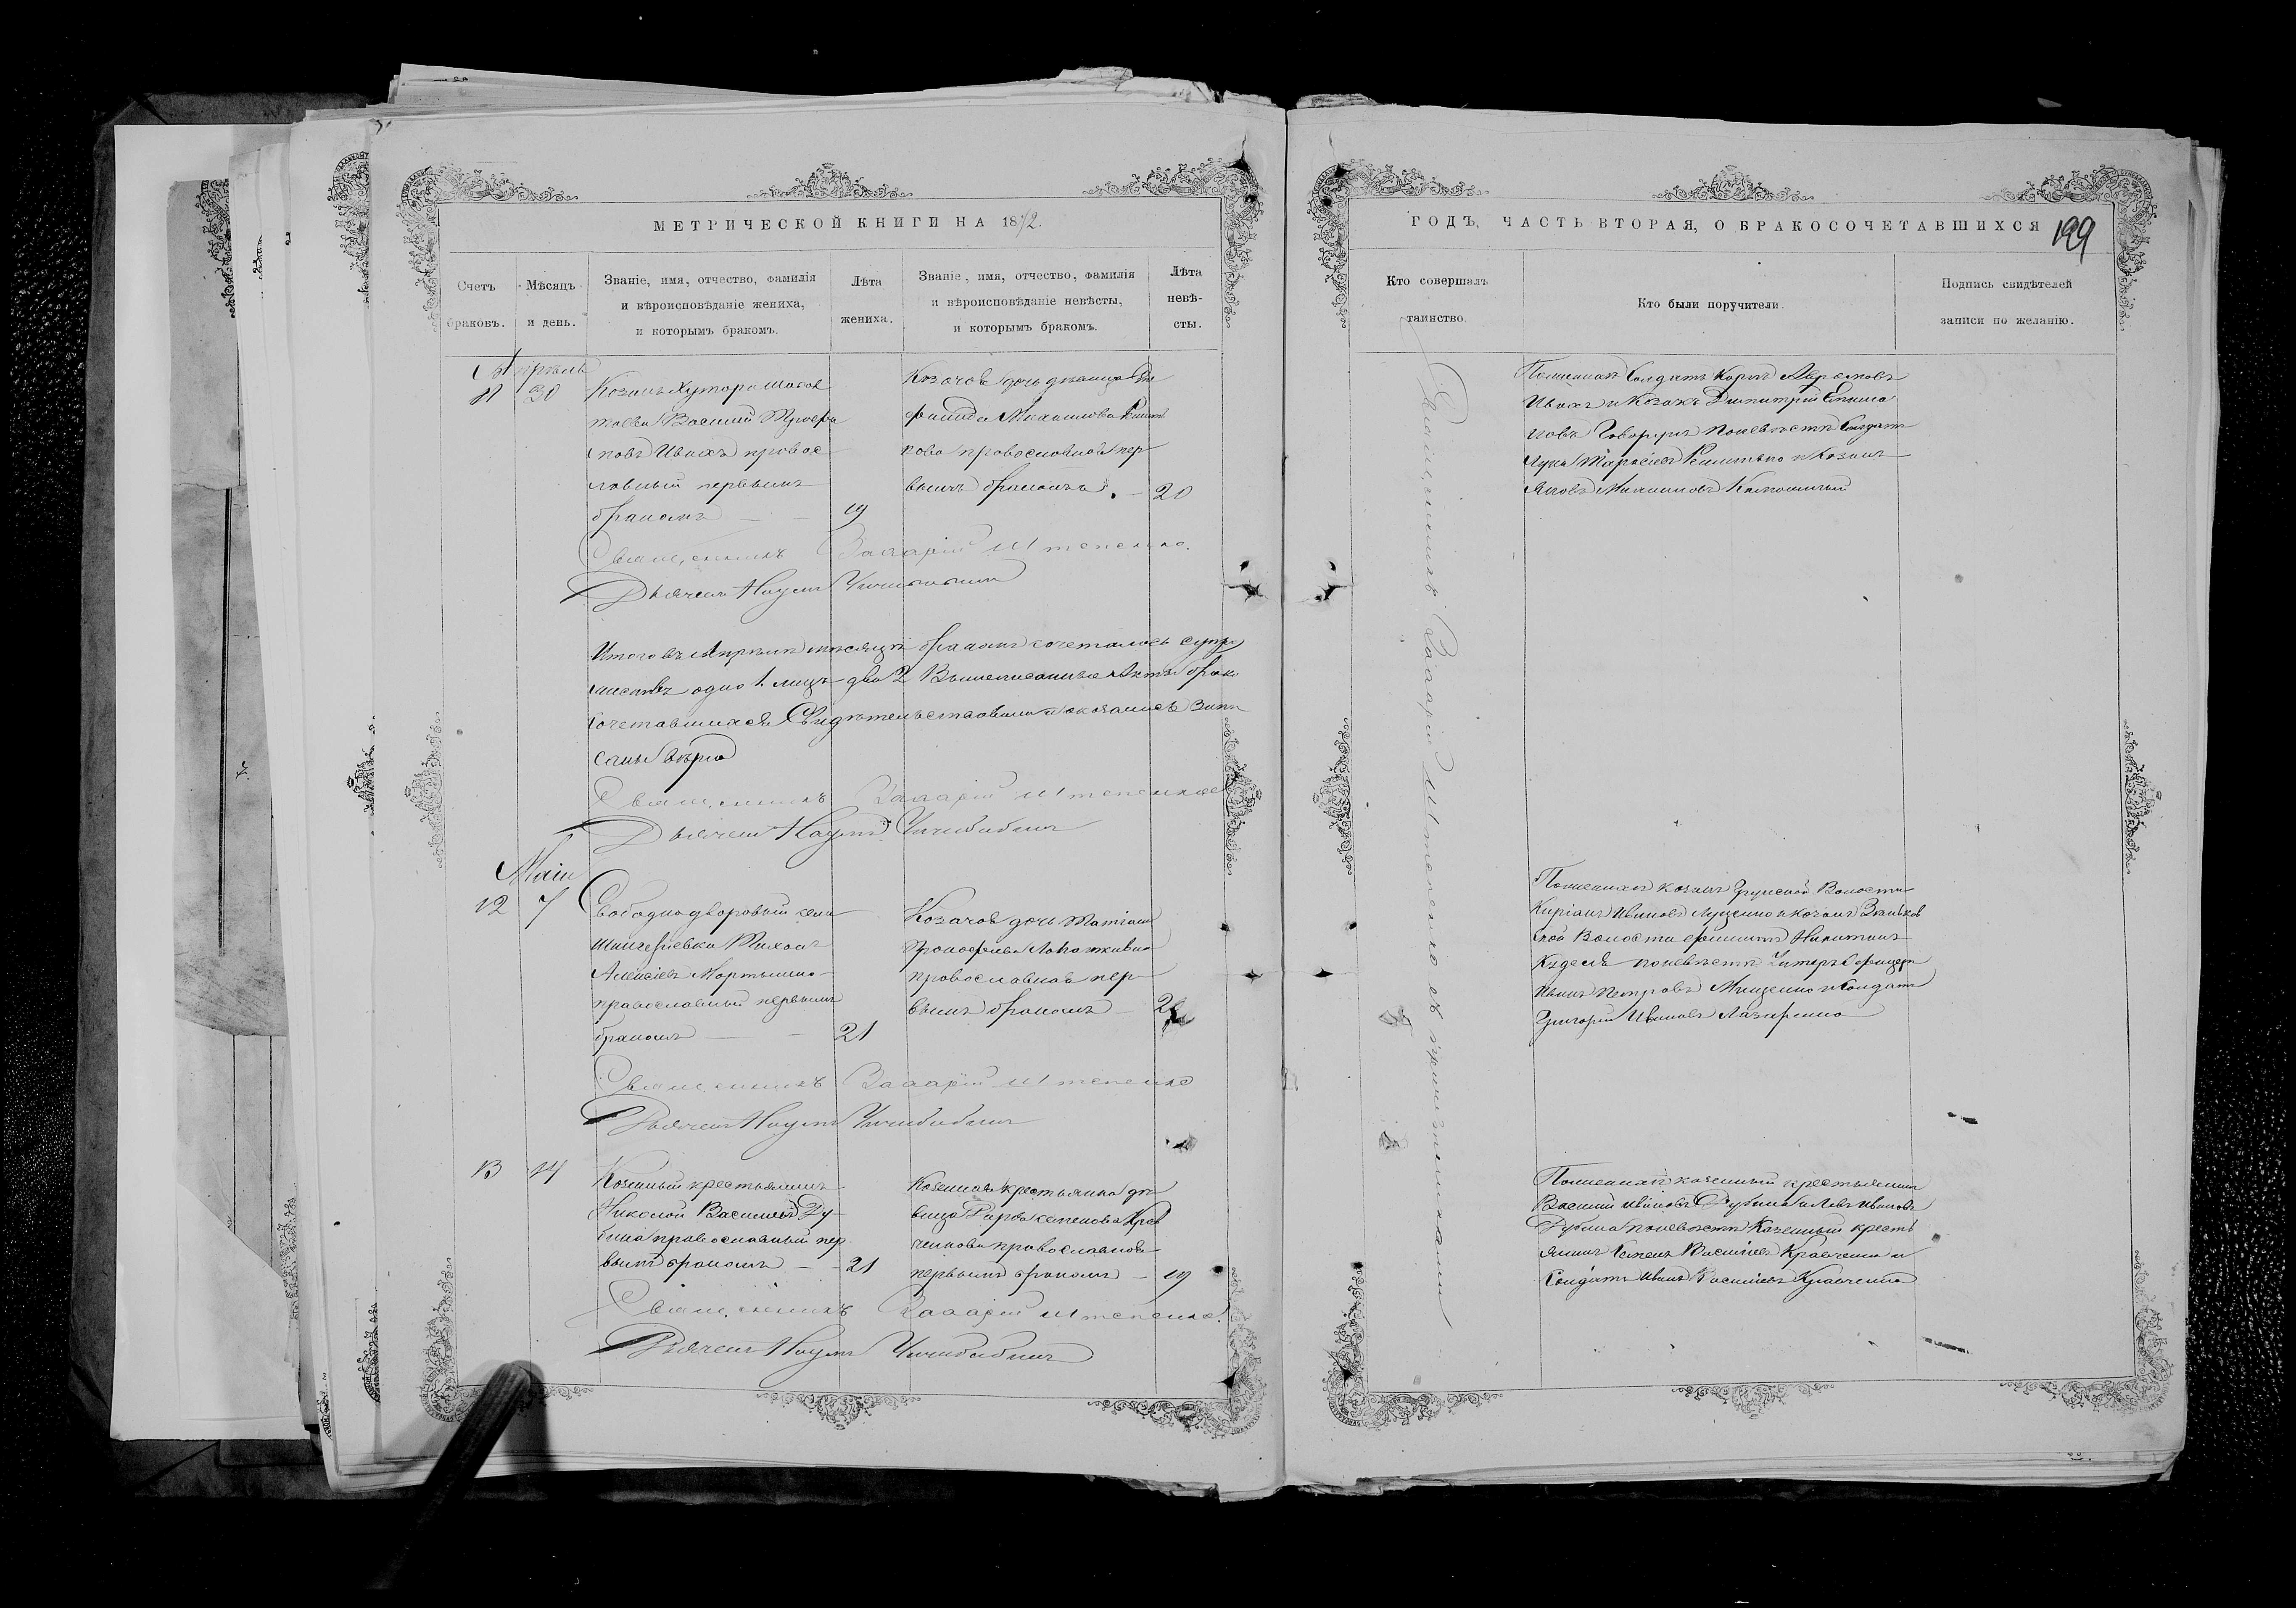 МЕТРИЧЕСКОЙ КНИГИ НА 1872.
Счетъ браковъ.
Мѣсяцъ и день.
Званіе, имя, отчество, фамилія
и вѣроисповѣданіе жениха,
и которымъ бракомъ.
Лѣта
жениха.
Званіе, имя, отчество, фамилія
и вѣроисповѣданіе невѣсты,
и которымъ бракомъ.
Лѣта
невѣ-
сты.
Апрѣль
11 30
Козакъ Хутора
Василій
Ивахъ правос
лавный первымъ
бракомъ
19
Козачья дочь дѣвица
Михаилова
кова православная пер
вымъ бракомъ. 20
Священникъ Захарій Штепенко.
Дьячекъ Наумъ Чичибабинъ
Итого въ Апрѣлѣ мѣсяцѣ бракомъ сочеталось супру
жествъ одно 1. лицъ два 2 Вышеписанные Акты брако
сочетавшихся Свидѣтельствованы и оказались запи
саны вѣрно
Священникъ Захарій Штепенко
Дьячекъ Наумъ Чичибабинъ
Маій
12 7
Свободнодворовый села
Тихонъ
Алексіевъ Мартыненко
православный первымъ
бракомъ 21
Козачья дочь
православная пер
вымъ бракомъ
Священникъ Захарій Штепенко
Дьячекъ Наумъ Чичибабинъ
13 14
Козенный крестьянинъ
Николай Васильевъ Ду-
бина православный пер
вымъ бракомъ 21
Козенная крестьянка дѣ
вица семенова Крав
ченкова православная
первымъ бракомъ 19
Священникъ Захарій Штепенко.
Дьячекъ Наумъ Чичибабинъ
ГОДЪ, ЧАСТЬ ВТОРАЯ, О БРАКОСОЧЕТАВШИХСЯ 199
Кто совершалъ
таинство.
Кто были поручители.
Подпись свидѣтелей
записи по желанію.
Священникъ Захарій Штепенко съ причетниками
По женихѣ Солдатъ Карпъ
Ивахъ и Козакъ Димитрій
новъ Говоруха по невѣстѣ Солдатъ
Лука и Козакъ
Яковъ Михаиловъ
По женихѣ козакъ Грунской Волости
Ивановъ Луценко и козакъ Зѣньков
ской Волости Никитинъ
по невѣстѣ Унтеръ Офицеръ
Иванъ Петровъ Мищенко и Солдатъ
Григорій Ивановъ Лазаренко
По женихѣ козенный крестьянинъ
Василій Ивановъ Дубина и Левъ Ивановъ
Дубина по невѣстѣ Козенный кресть
янинъ Семенъ Васильевъ Кравченко и
Солдатъ Иванъ Васильевъ Кравченко